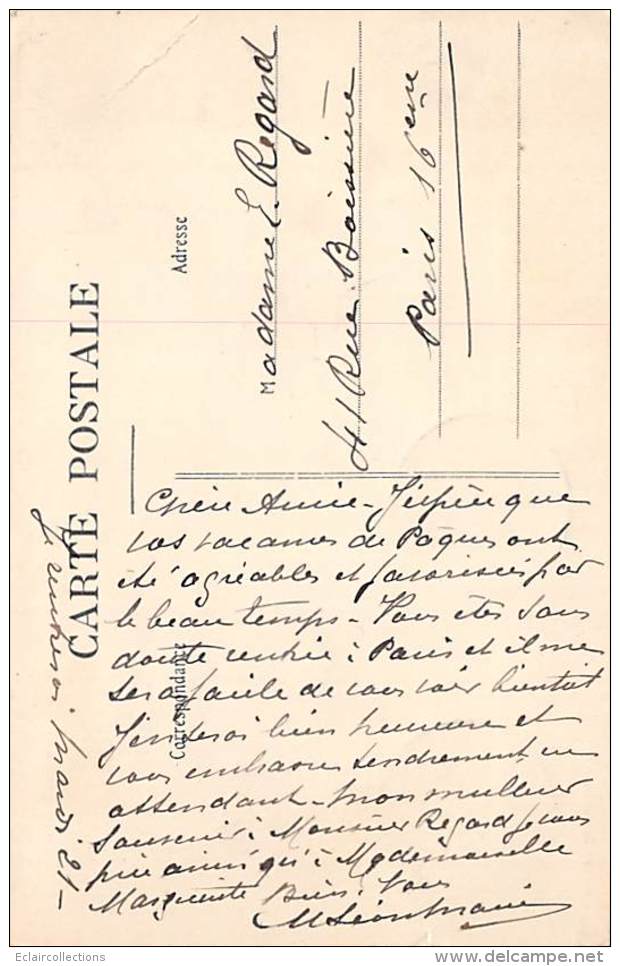 CARTE POSTALE
Correspondance
Adresse
Madame E. Regard
41 Rue Boissière
Paris 16ème
Chère Amie - J'espère que
vos vacances de Pâques ont
été agréables et favorisées par
le beau temps - Vous êtes sans
doute rentrée à Paris et il me
sera facile de vous voir bientôt
J'en serai bien heureuse et
vous embrasse tendrement en
attendant - Mon meilleur
souvenir à Monsieur Regard je vous
prie ainsi qu'à Mademoiselle
Marguerite Bien à vous
Je rentrerai mardi 21 -
Eclaircollections
delcampe.net